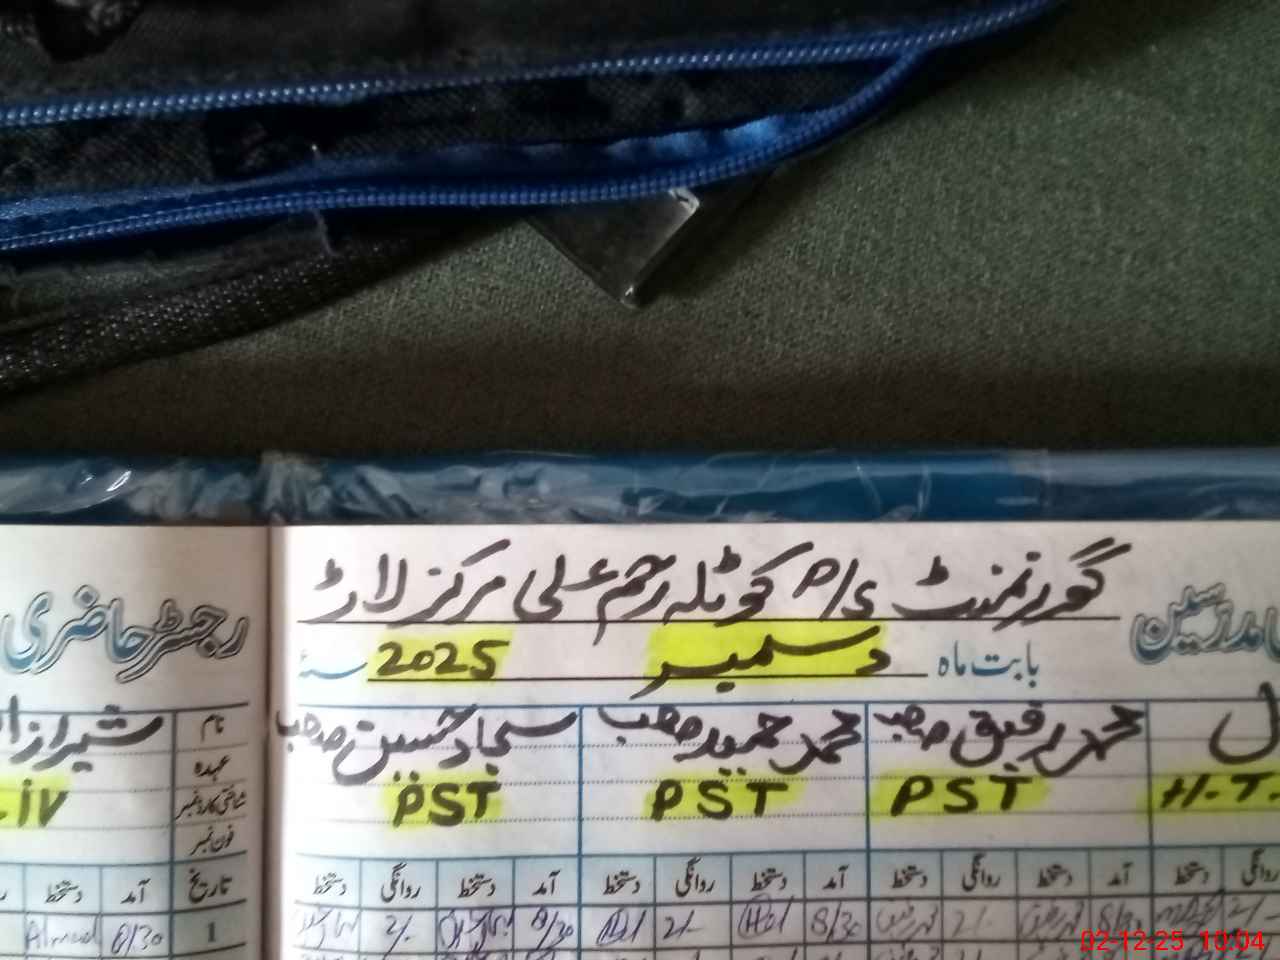 گورنمنٹ P/S کوٹلہ رحم علی مرکز لاڑ
مدرسین
رجسٹر حاضری
بابت ماہ دسمبر 2025
محمد رفیق صاحب
محمد حمید صاحب
سجاد حسین صاحب
نام
شیراز
عہدہ
H.T.
PST
PST
PST
شناختی کارڈ نمبر
-IV
فون نمبر
روانگی
دستخط آمد دستخط روانگی دستخط
آمد دستخط روانگی دستخط
آمد دستخط روانگی دستخط
تاریخ آمد دستخط
2/-
8/30 2/-
8/30 2/-
8/30 2/-
1 8/30 Ahmad
02-12-25 10:04